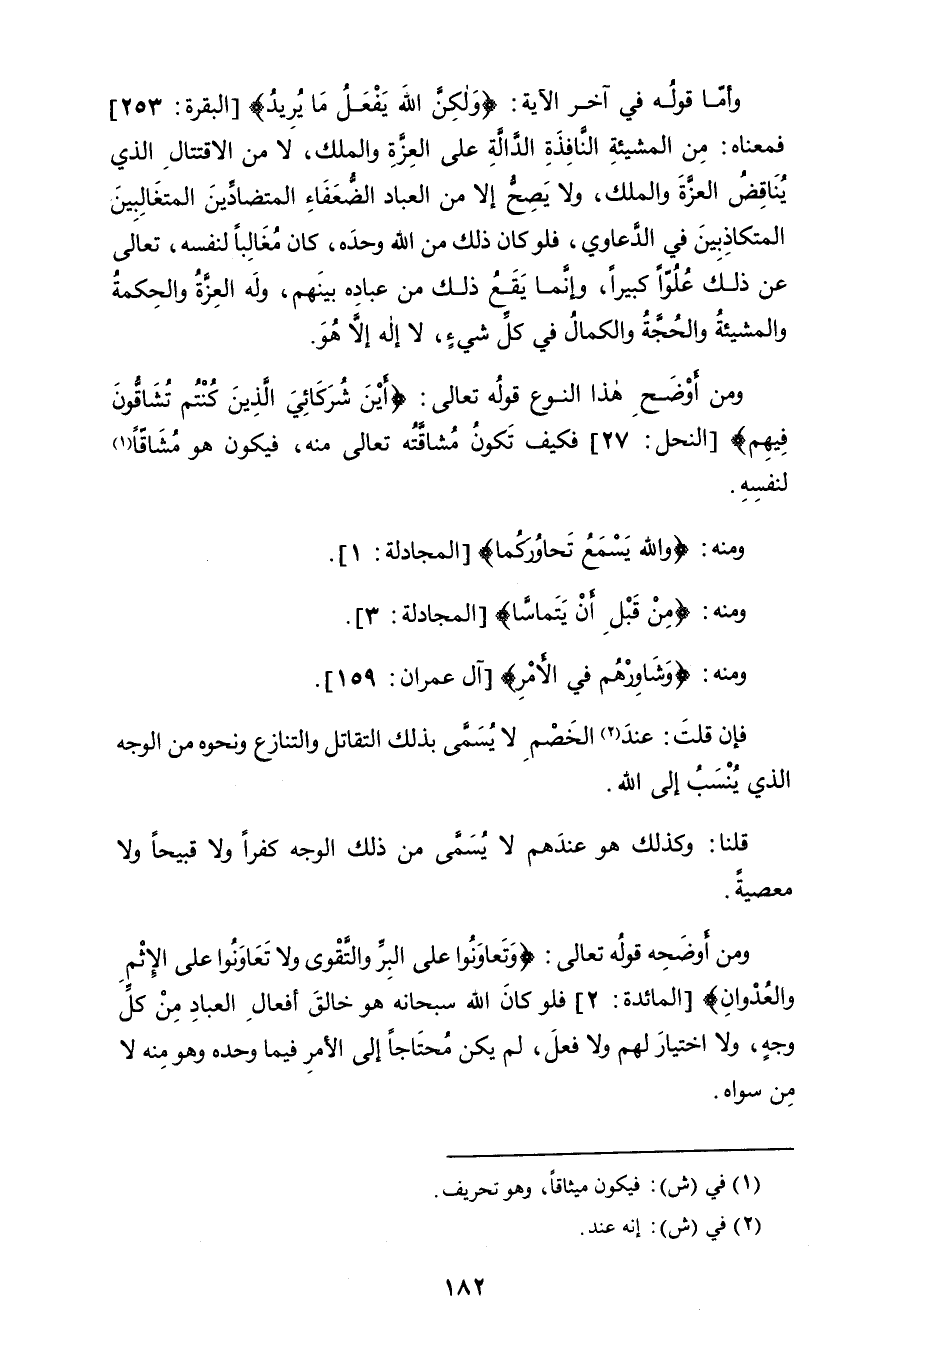 وأمّا قولُه في آخر الآية: ﴿وَلٰكِنَّ اللهَ يَفْعَلُ مَا يُرِيدُ﴾ [البقرة: ٢٥٣]
فمعناه: مِن المشيئةِ النَّافِذَةِ الدَّالَّةِ على العِزَّةِ والملك، لا من الاقتتالِ الذي
يُنَاقِضُ العزَّةَ والملك، ولا يَصِحُّ إلا من العباد الضُّعَفَاءِ المتضادِّينَ المتغَالِبينَ
المتكاذِبينَ في الدَّعاوي، فلو كان ذلك من الله وحدَه، كان مُغَالِباً لنفسه، تعالى
عن ذلك عُلُوّاً كبيراً، وإنَّما يَقَعُ ذلك من عبادِه بينَهم، ولَه العِزَّةُ والحِكمةُ
والمشيئةُ والحُجَّةُ والكمالُ في كلِّ شيءٍ، لا إلٰه إلَّا هُوَ.
ومن أَوْضَحِ هٰذا النوع قولُه تعالى: ﴿أَيْنَ شُرَكَائِيَ الَّذِينَ كُنْتُم تُشَاقُّونَ
فِيهِم﴾ [النحل: ٢٧] فكيف تَكونُ مُشاقَّتُه تعالى منه، فيكون هو مُشَاقّاً(١)
لنفسِهِ.
ومنه: ﴿والله يَسْمَعُ تَحاوُرَكُما﴾ [المجادلة: ١].
ومنه: ﴿مِنْ قَبْلِ أَنْ يَتَماسَّا﴾ [المجادلة: ٣].
ومنه: ﴿وَشَاوِرْهُم في الأَمْرِ﴾ [آل عمران: ١٥٩].
فإن قلتَ: عندَ(٢) الخَصْمِ لا يُسَمَّى بذلك التقاتل والتنازع ونحوه من الوجه
الذي يُنْسَبُ إلى الله.
قلنا: وكذلك هو عندَهم لا يُسَمَّى من ذلك الوجه كفراً ولا قبيحاً ولا
معصيةً.
ومن أَوضَحِه قولُه تعالى: ﴿وَتَعاوَنُوا على البِرِّ والتَّقْوى ولا تَعَاوَنُوا على الإِثْمِ
والعُدْوانِ﴾ [المائدة: ٢] فلو كانَ الله سبحانه هو خالقَ أفعالِ العبادِ مِنْ كلِّ
وجهٍ، ولا اختيارَ لهم ولا فعلَ، لم يكن مُحتَاجاً إلى الأمرِ فيما وحده وهو مِنه لا
مِن سواه.
(١) في (ش): فيكون ميثاقاً، وهو تحريف.
(٢) في (ش): إنه عند.
١٨٢